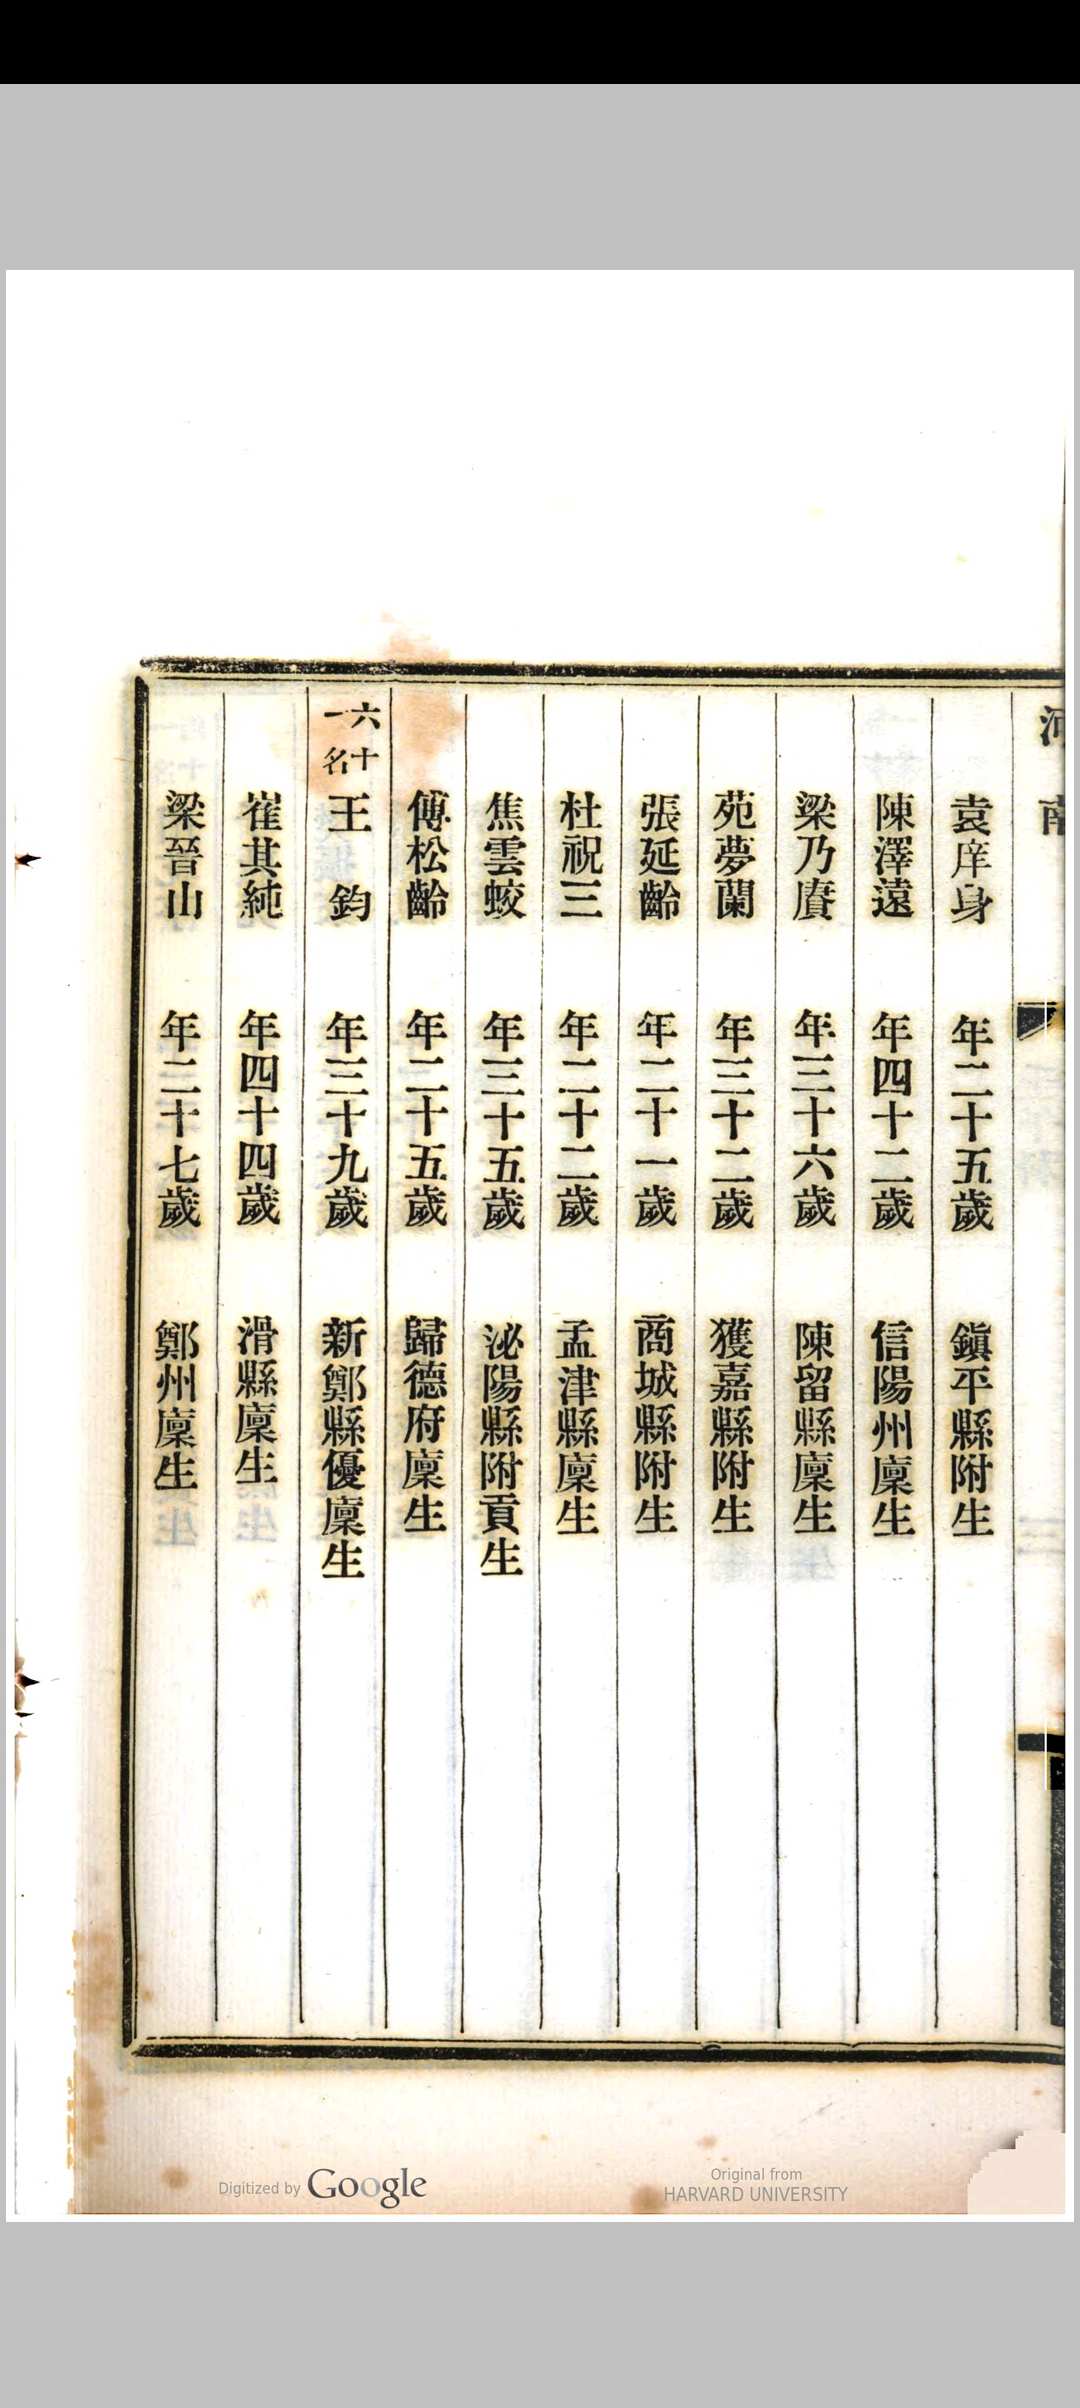 河南
袁庠身 年二十五歲 鎭平縣附生
陳澤遠 年四十二歲 信陽州廩生
梁乃賡 年三十六歲 陳留縣廩生
苑夢蘭 年三十二歲 獲嘉縣附生
張延齡 年二十一歲 商城縣附生
杜祝三 年二十二歲 孟津縣廩生
焦雲蛟 年三十五歲 泌陽縣附貢生
傅松齡 年二十五歲 歸德府廩生
六十一名 王鈞 年三十九歲 新鄭縣優廩生
崔其純 年四十四歲 滑縣廩生
梁晉山 年二十七歲 鄭州廩生
Digitized by Google
Original from
HARVARD UNIVERSITY